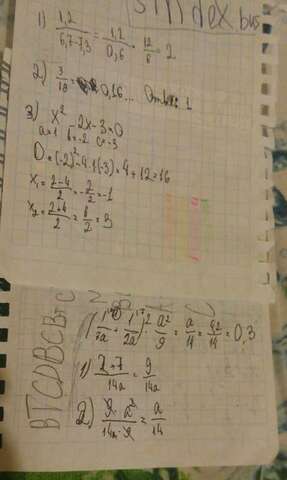 sindex bus
1) 1,2/6,7-7,3 = 1,2/0,6 = 12/6 = 2
2) 3/18 = 0,16... Ответ: 1
3) x² - 2x - 3 = 0
a=1 b=-2 c=-3
D = (-2)² - 4·1·(-3) = 4 + 12 = 16
x₁ = 2-4/2 = -2/2 = -1
x₂ = 2+4/2 = 6/2 = 3
BTCDBCBTC
a²/9 = a/14 = 4,2/14 = 0,3
1) 2+7/14a = 9/14a
2) 9·a²/14a·9 = a/14